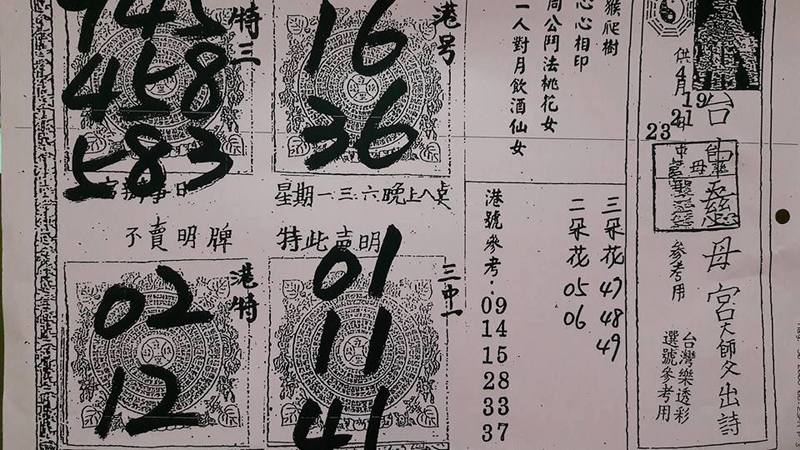 945
458
583
特三
16
36
港号
星期一三六晚上八點
不賣明牌
特此賣明
02
12
港特
01
11
41
三中一
猴爬樹
心心相印
周公鬥法桃花女
一人對月飲酒仙女
港號參考:
09
14
15
28
33
37
三朵花 47 48 49
二朵花 05 06
供
4月
19
21
23
參考用
台
慈母宮大師父出詩
台灣樂透彩
選號參考用